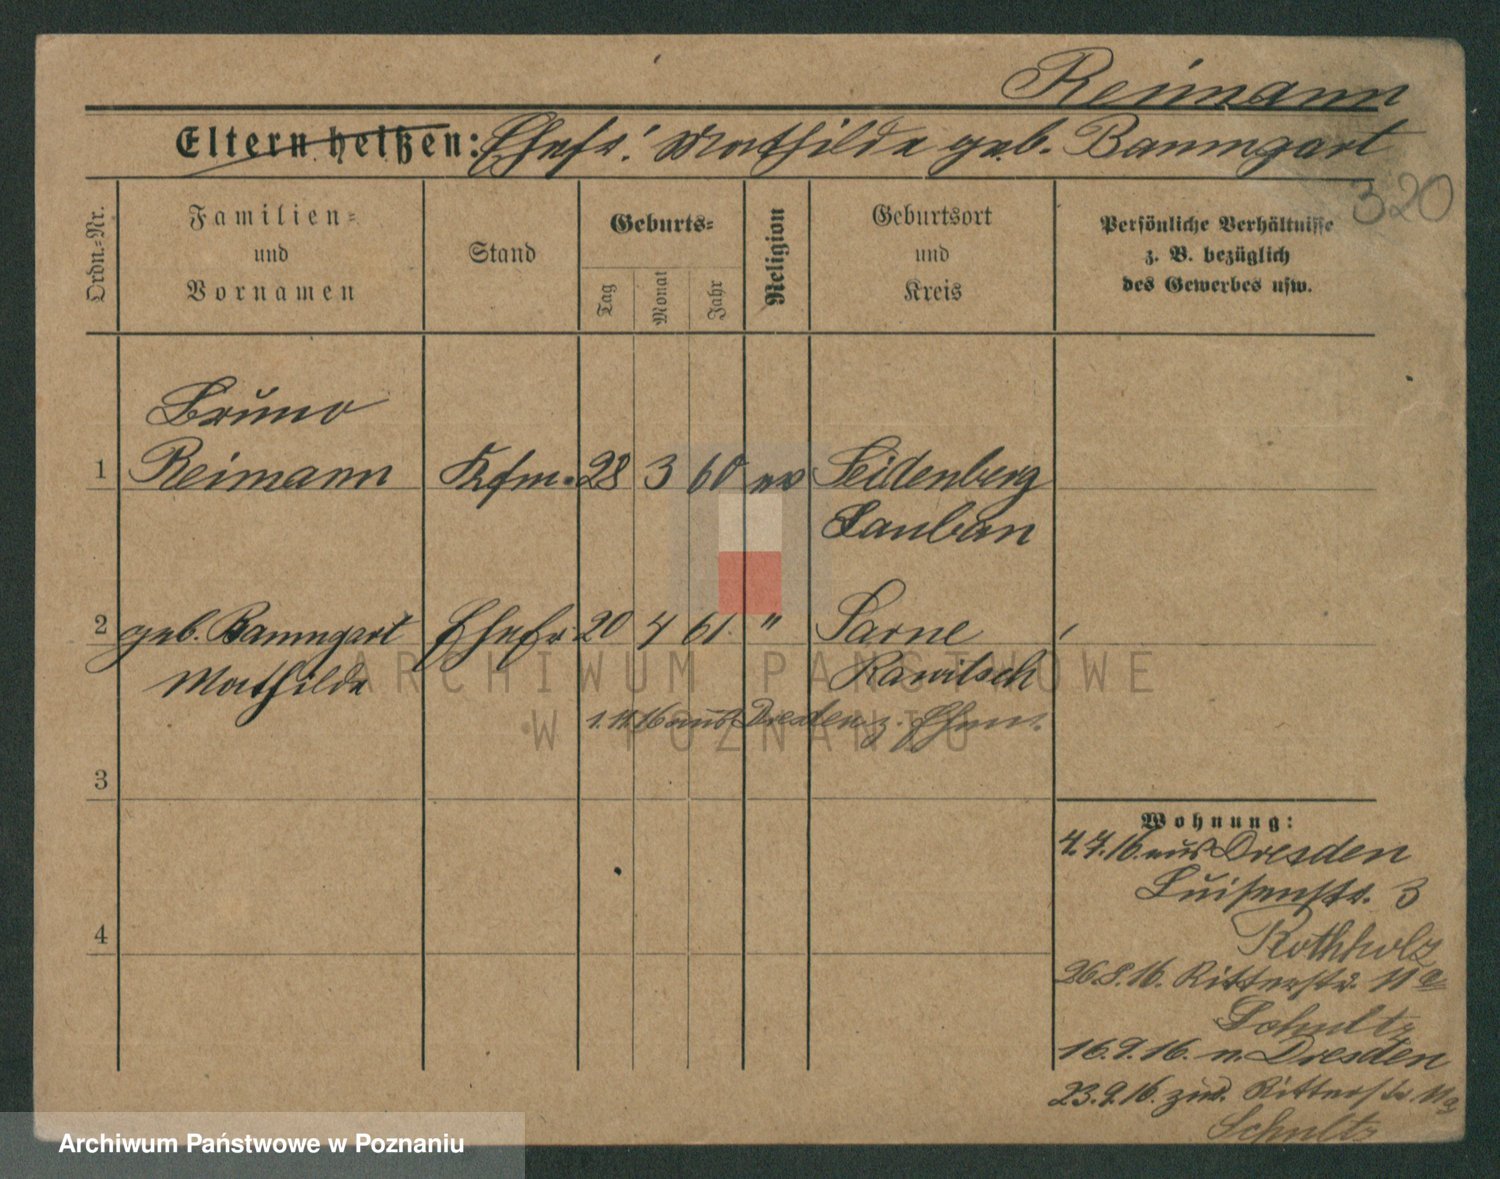 Reimann
Eltern heißen: Ehefr. Mathilde geb. Baumgart
320
Ordn.-Nr.
Familien-
und
Vornamen
Stand
Geburts-
Tag
Monat
Jahr
Religion
Geburtsort
und
Kreis
Persönliche Verhältnisse
z. B. bezüglich
des Gewerbes usw.
Bruno
1 Reimann Kfm. 28 3 60 ev Seidenberg
Lauban
2 geb. Baumgart Ehefr. 20 4 61. " Sarne
Mathilde Rawitsch
1.11.16 aus Dresden z. Ehem.
3
4
Wohnung:
4.7.16. aus Dresden
Luisenstr. 3
Rothholz
26.8.16. Ritterstr. 11a
Schultz
16.9.16. n. Dresden
23.9.16. zur. Ritterstr. 11a
Schultz
ARCHIWUM PAŃSTWOWE
W POZNANIU
Archiwum Państwowe w Poznaniu